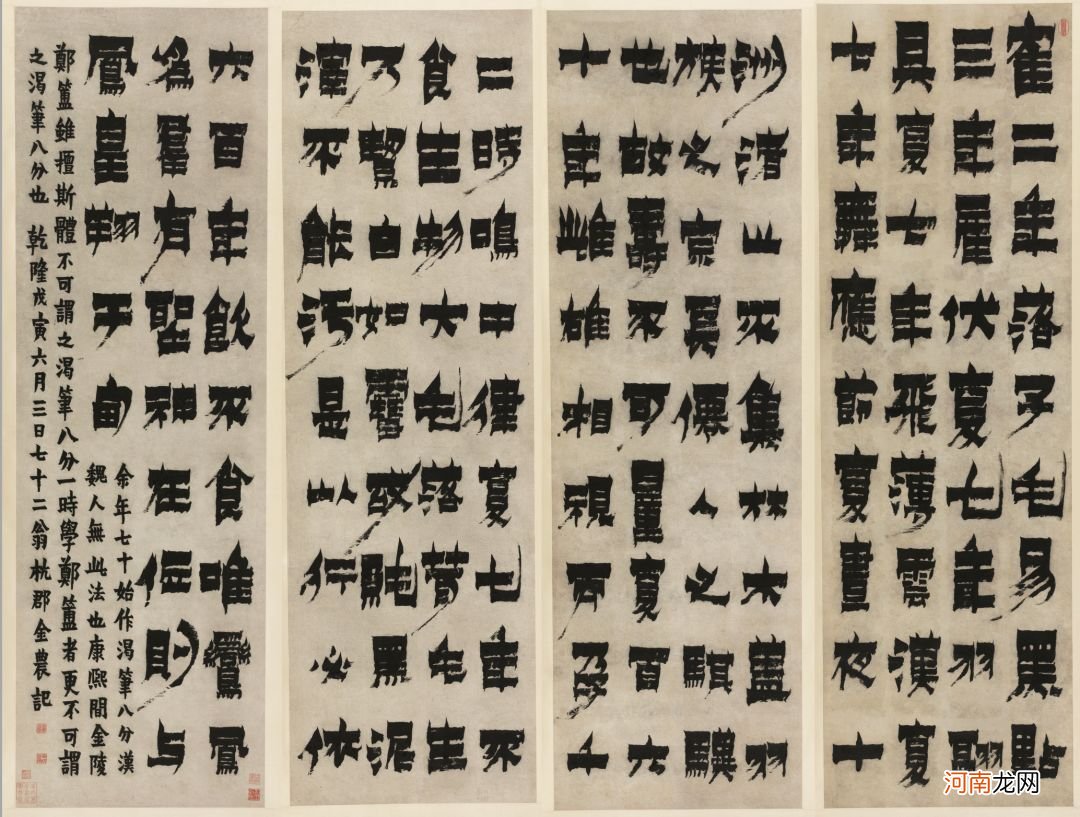 隺二年落子毛易黑點
三年産伏复七年羽翮
具复七年飛薄雲漢复
七年舞應節复晝夜十
洲渚止不集林木蓋羽
族之宗長僊人之騏驥
也故壽不可量复百六
十年雌雄相視而孕千
二時鳴中律复七年不
食生物大毛落茸毛生
乃絜白如雪或純黑泥
渾不能污是以行必依
六百年飲不食唯鸞鳳
為羣有聖神在位則与
鳳皇翔于甸
余年七十始作渴筆八分漢
魏人無此法也康熙間金陵
鄭簠雖擅斯體不可謂之渴筆八分一時學鄭簠者更不可謂
之渴筆八分也 乾隆戊寅六月三日七十二翁杭郡金農記
河南龙网